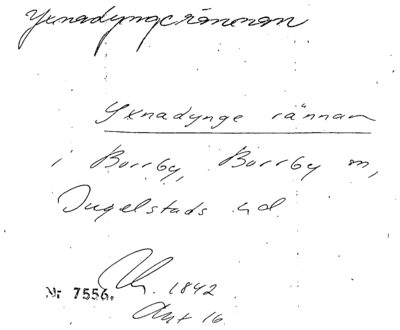 Yxnadyngerännan
Yxnadynge rännan
i Borrby, Borrby sn,
Ingelstads hd
Nr 7556. 1842
Akt 16.